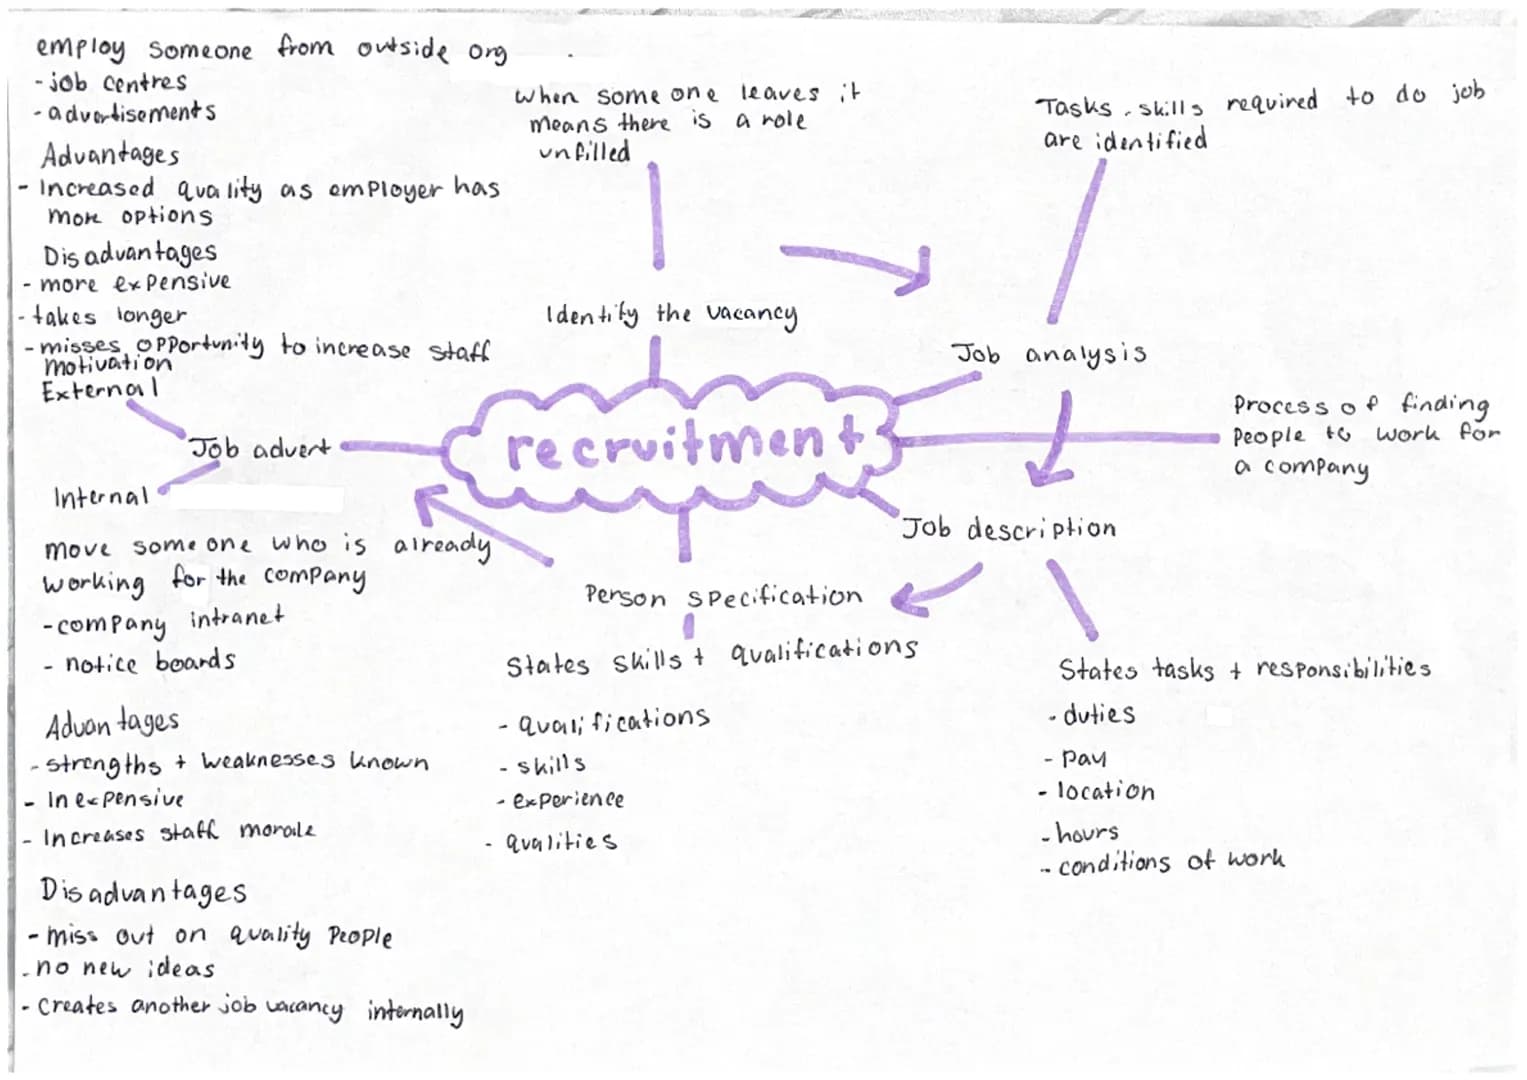 employ someone from outside org
- job centres
- advertisements
Advantages
- Increased quality as employer has
more options
Disadvantages
- more expensive
- takes longer
- misses opportunity to increase staff
motivation
External
Job advert
Internal
move someone who is already
working for the company
- company intranet
- notice boards
Advantages
- strengths + weaknesses known
- Inexpensive
- Increases staff morale
Disadvantages
- miss out on quality people
- no new ideas
- creates another job vacancy internally
when someone leaves it
means there is a role
unfilled
Identify the vacancy
recruitment
Person specification
States skills + qualifications
- qualifications
- skills
- experience
- qualities
Tasks, skills required to do job
are identified
Job analysis
Process of finding
people to work for
a company
Job description
States tasks + responsibilities
- duties
- pay
- location
- hours
- conditions of work